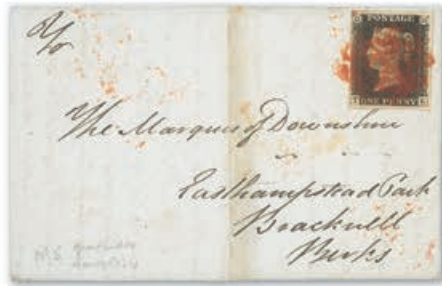 POSTAGE
ONE PENNY
The Marquis of Downshire
Easthampstead Park
Bracknell
Berks